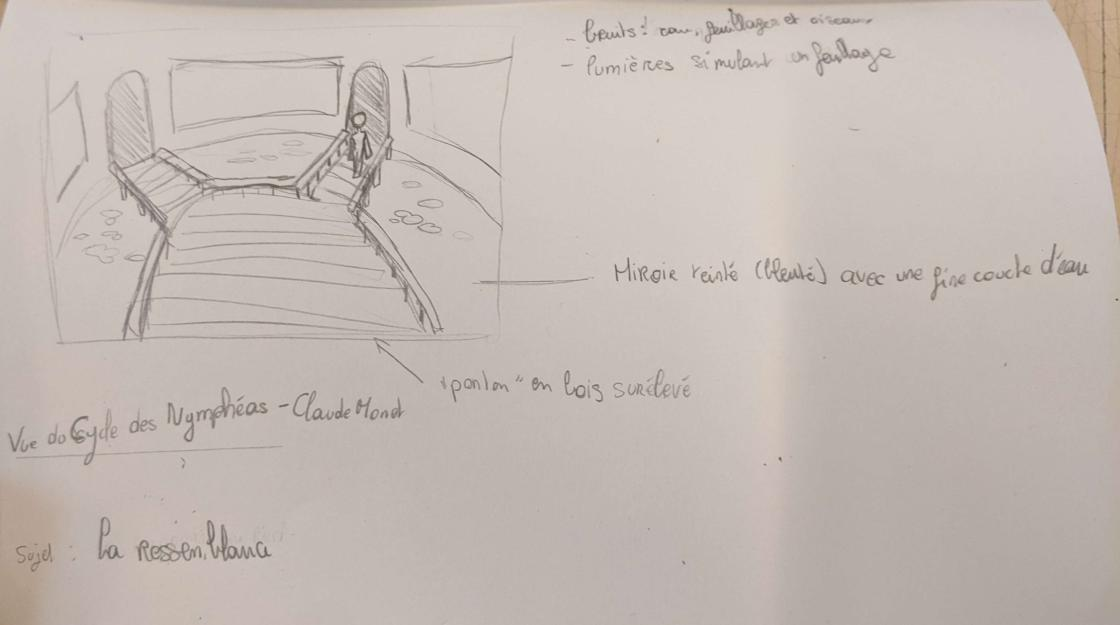 - bruits : eau, feuillages et oiseaux
- lumières simulant un feuillage
Miroir teinté (bleuté) avec une fine couche d'eau
"ponton" en bois surélevé
Vue du Cycle des Nymphéas - Claude Monet
Sujet : La ressemblance